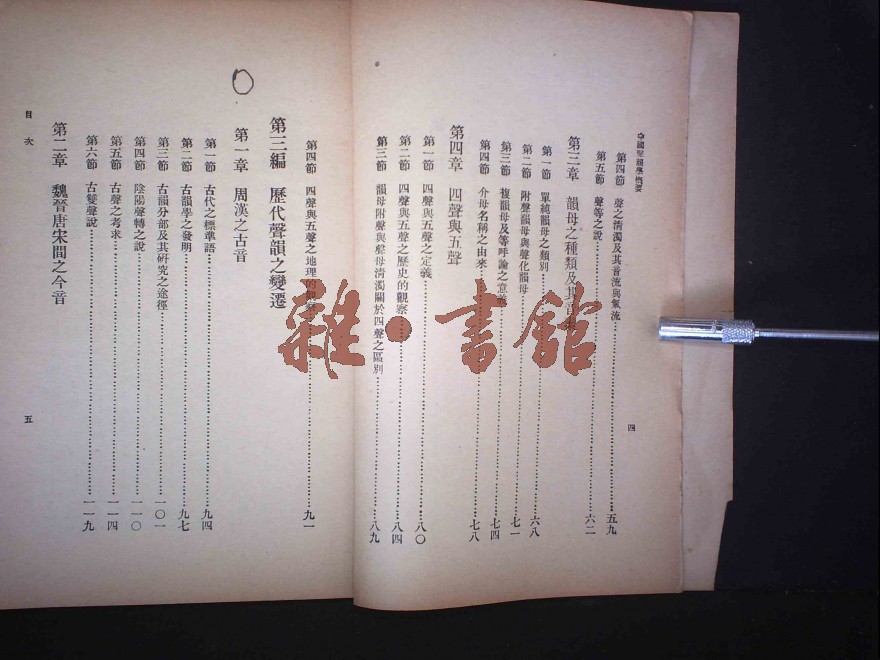 中國聲韻學概要
第四節 聲之清濁及其音流與氣流……五九
第五節 聲等之說……六二
第三章 韻母之種類及其
第一節 單純韻母之類別……六八
第二節 附聲韻母與聲化韻母……七一
第三節 複韻母及等呼論之意義……七四
第四節 介母名稱之由來……七八
第四章 四聲與五聲
第一節 四聲與五聲之定義……八〇
第二節 四聲與五聲之歷史的觀察……八四
第三節 韻母附聲與聲母清濁關於四聲之區別……八九
四
第四節 四聲與五聲之地理的觀察……九一
第三編 歷代聲韻之變遷
第一章 周漢之古音
第一節 古代之標準語……九四
第二節 古韻學之發明……九七
第三節 古韻分部及其研究之途徑……一〇一
第四節 陰陽聲轉之說……一一〇
第五節 古聲之考求……一一四
第六節 古雙聲說……一一九
第二章 魏晉唐宋間之今音
目次
五
雜·書館